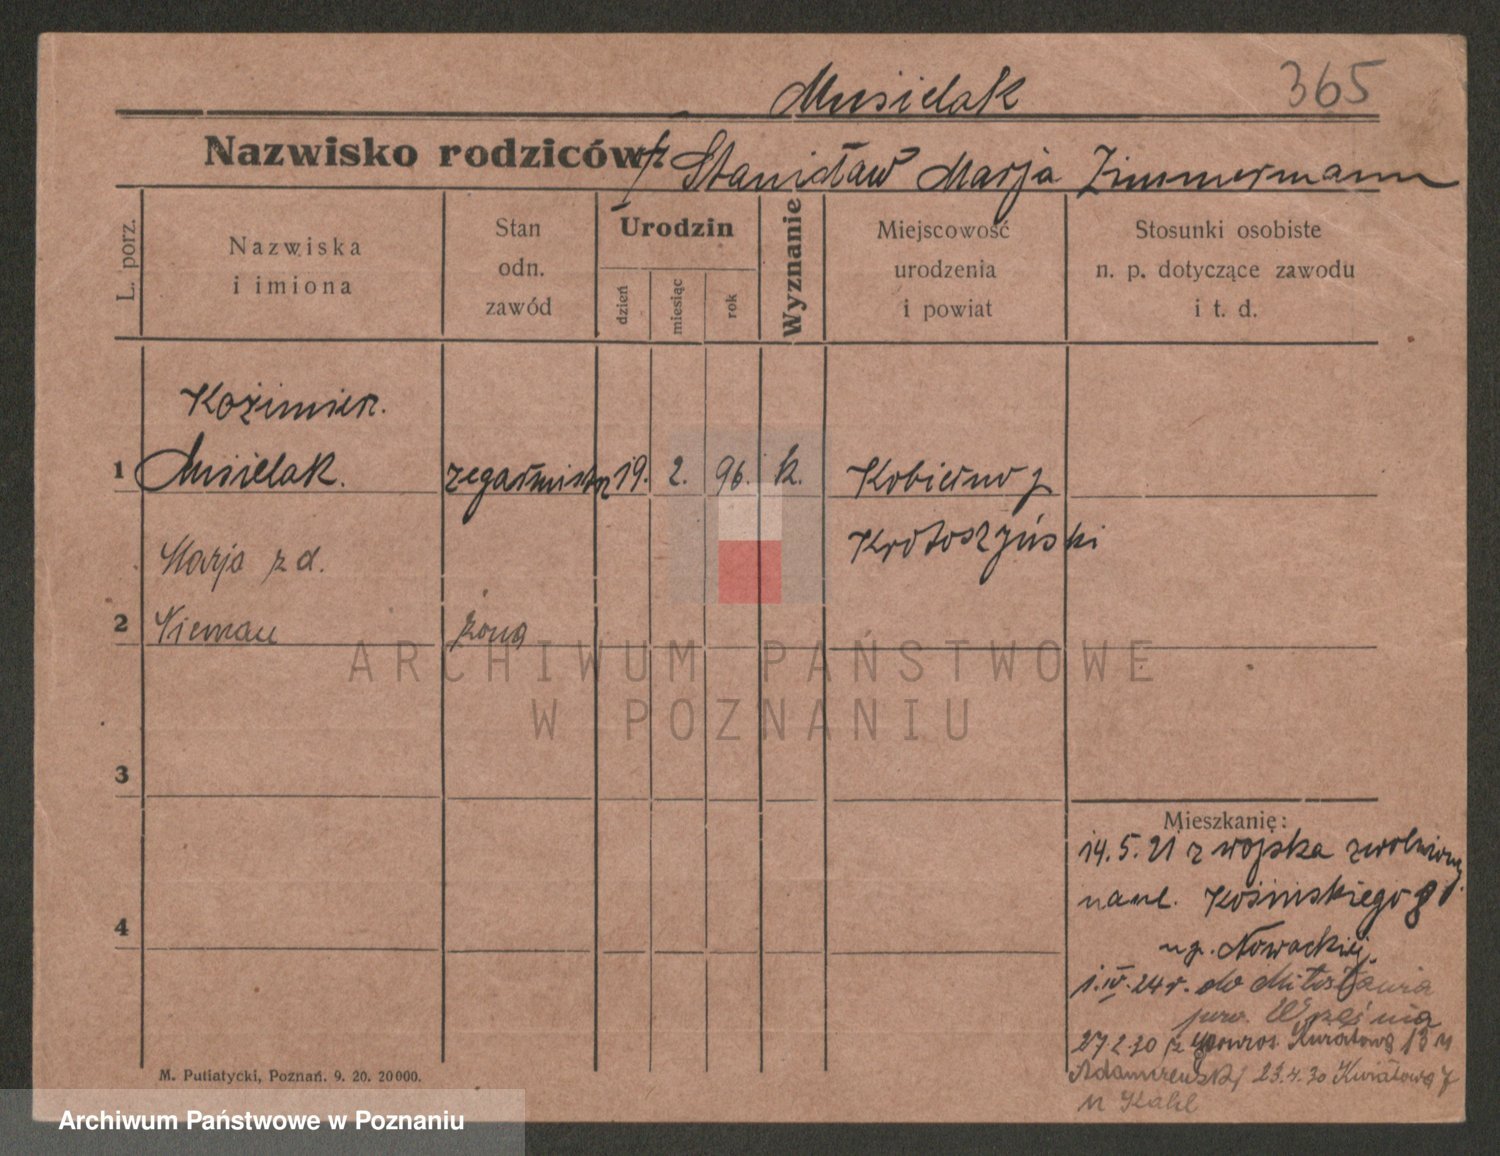 Musielak 365
Nazwisko rodziców: Stanisław Marja Zimmermann
L. porz.
Nazwiska
i imiona
Stan
odn.
zawód
Urodzin
dzień
miesiąc
rok
Wyznanie
Miejscowość
urodzenia
i powiat
Stosunki osobiste
n. p. dotyczące zawodu
i t. d.
Kazimierz.
1 Musielak. zegarmistrz 19. 2. 96. k. Kobierno
Krotoszyński
Marja z d.
2 Nieman żona
ARCHIWUM PAŃSTWOWE
W POZNANIU
3
4
Mieszkanie:
14.5.21 z wojska zwolniony
Kosińskiego 8
Nowackiej
1.IV.24 r. do Miłosławia
pow. Września
27.2.30 z Kwiatowa 13
23.4.30 Kwiatowa 7
M. Putiatycki, Poznań. 9. 20. 20000.
Archiwum Państwowe w Poznaniu